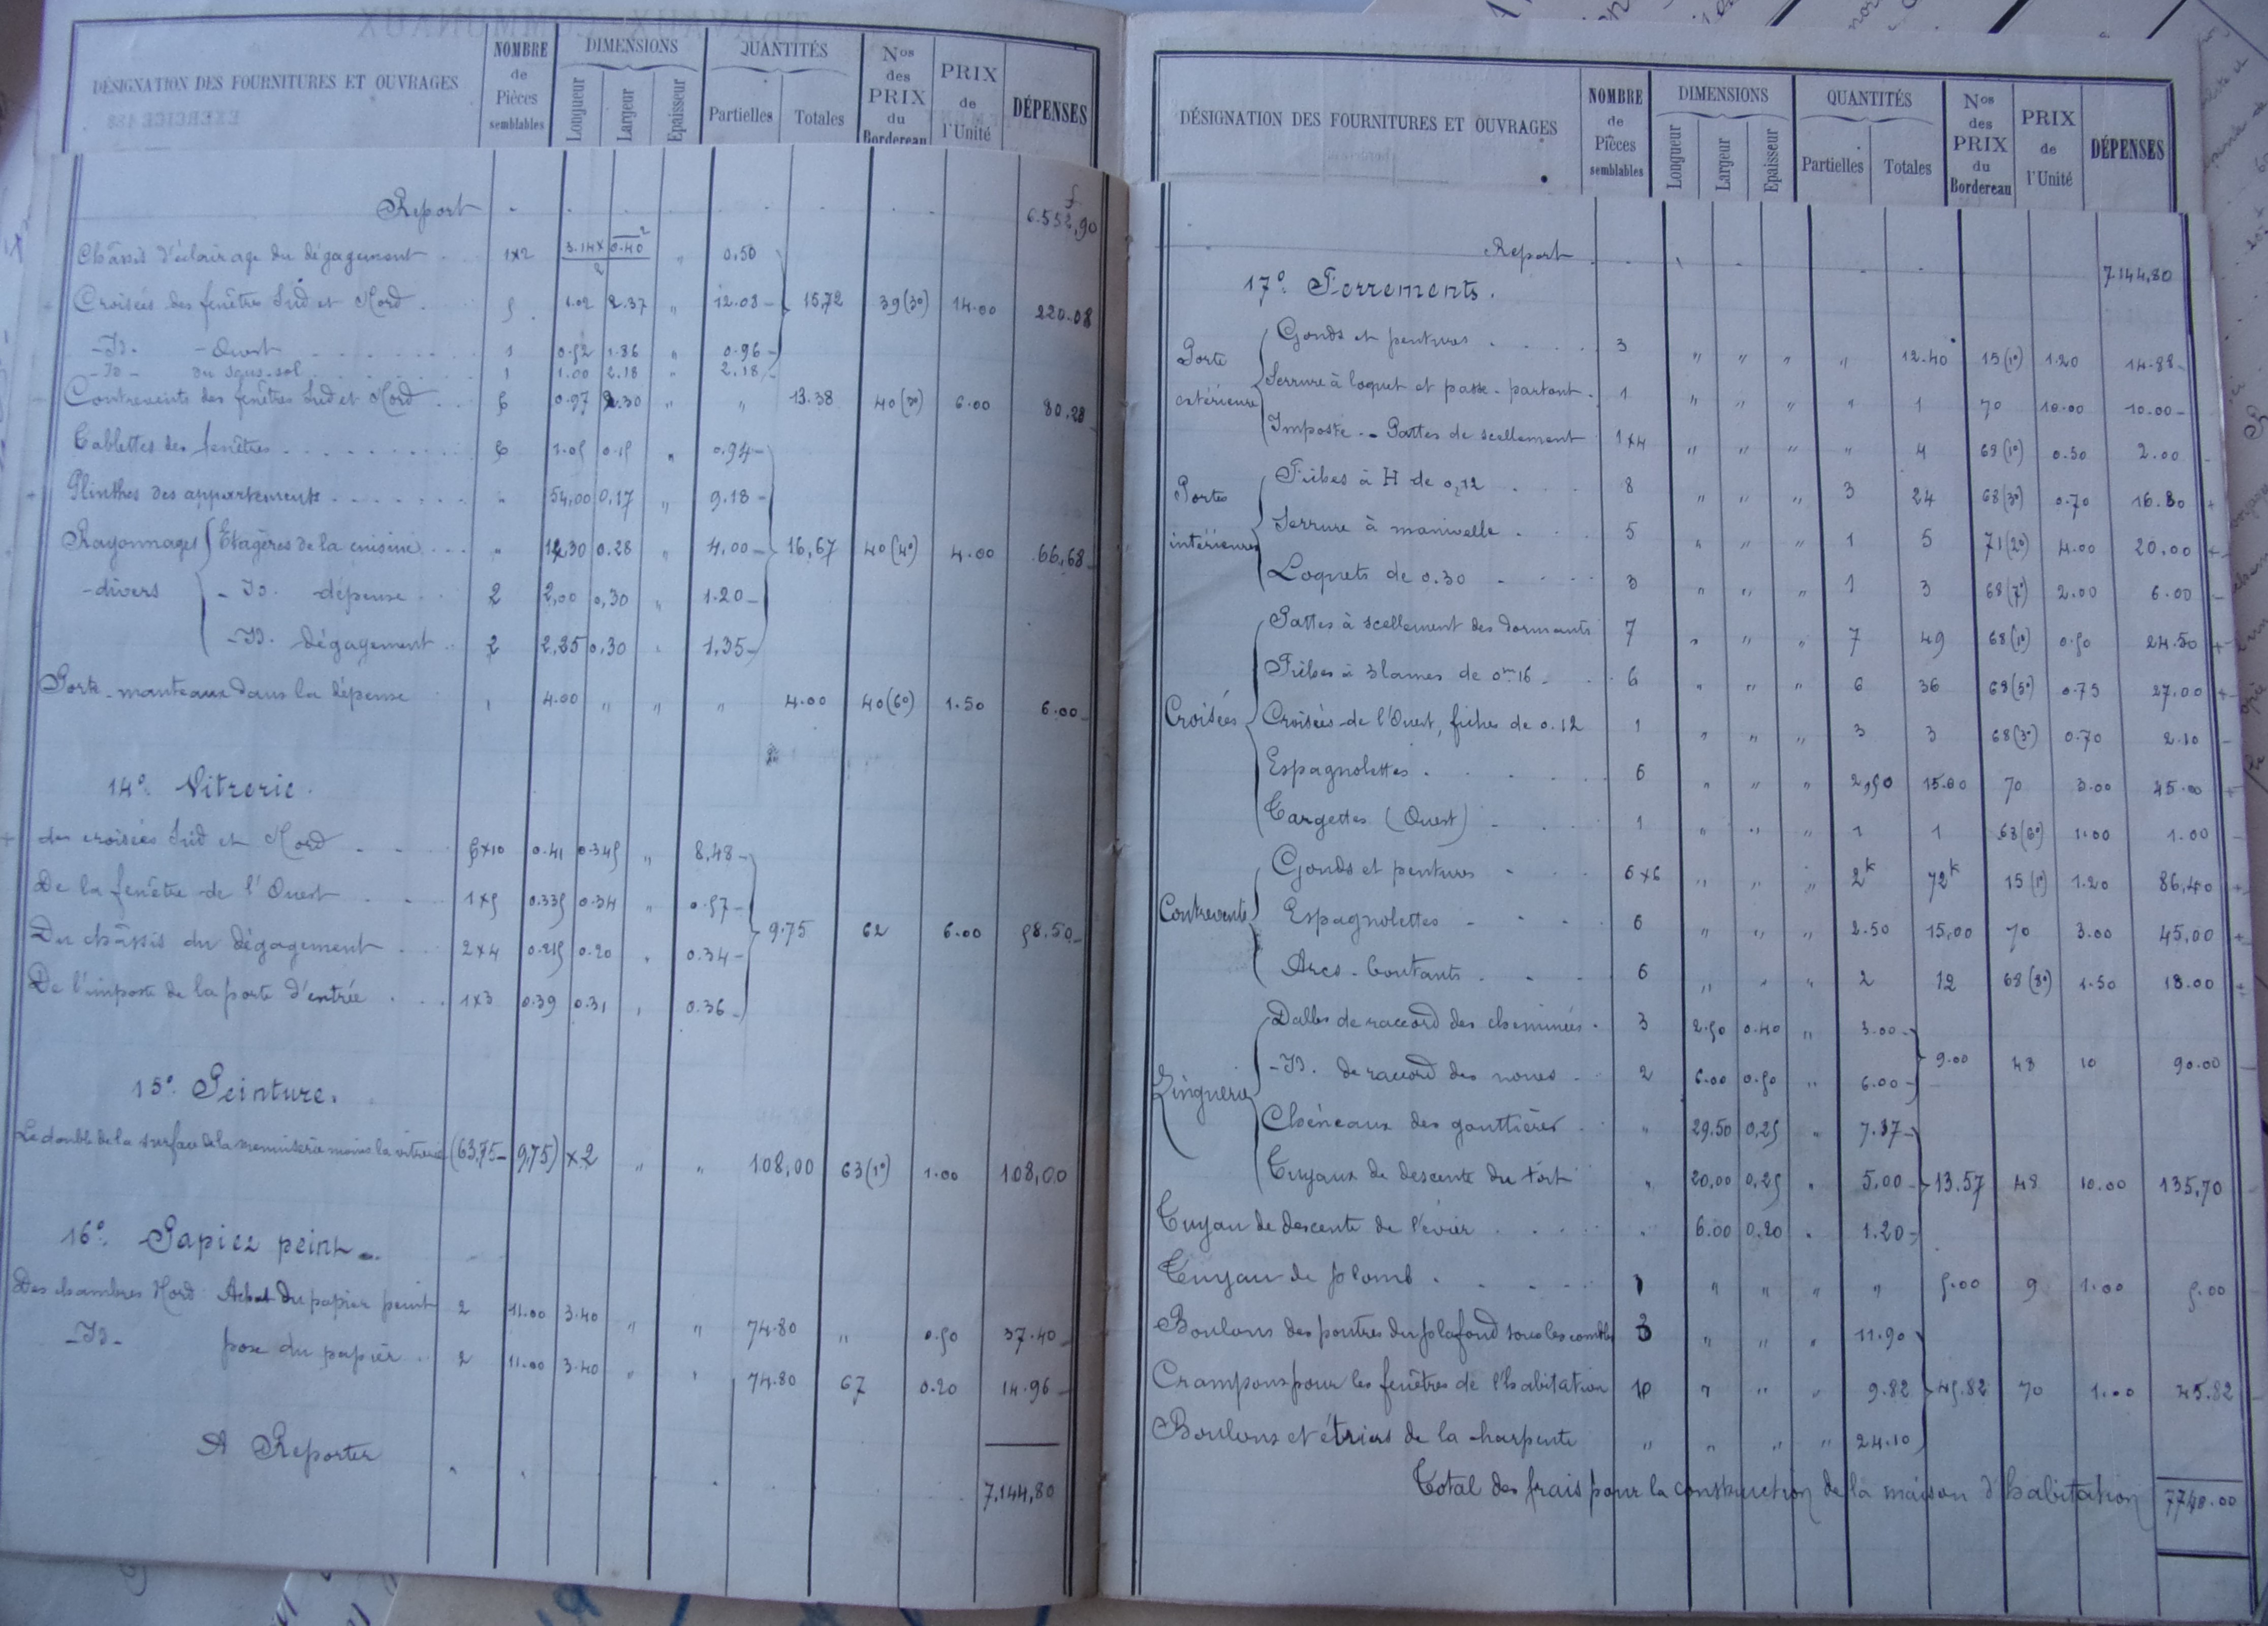 DÉSIGNATION DES FOURNITURES ET OUVRAGES NOMBRE de Pièces semblables DIMENSIONS Longueur Largeur Epaisseur QUANTITÉS Partielles Totales Nos des PRIX du Bordereau PRIX de l'Unité DÉPENSES
Report 6.552,90
Châssis d'éclairage du dégagement 1×2 3.14×0.40² / 2 " 0,50
Croisées des fenêtres Sud et Nord 5 1.02 2.37 " 12.08 15,72 39(3°) 14.00 220.08
-Id- -Ouest 1 0.52 1.86 " 0.96
-Id- du sous-sol 1 1.00 2.18 " 2.18
Contrevents des fenêtres Sud et Nord 6 0.97 2.30 " " 13.38 40(3°) 6.00 80.28
Tablettes des fenêtres 6 1.05 0.15 " 0.94
Plinthes des appartements " 54,00 0,17 " 9.18
Rayonnages divers Etagères de la cuisine " 14,30 0.28 " 4,00 16,67 40(4°) 4.00 66,68
-Id. dépense 2 2,00 0,30 " 1.20
-Id. dégagement 2 2,25 0,30 " 1,35
Porte-manteaux dans la dépense " 4.00 " " " 4.00 40(6°) 1.50 6.00
14° Vitrerie.
des croisées Sud et Nord 6×10 0.41 0.345 " 8,48
De la fenêtre de l'Ouest 1×5 0.335 0.34 " 0.57 9.75 62 6.00 58.50
Du châssis du dégagement 2×4 0.215 0.20 " 0.34
De l'imposte de la porte d'entrée 1×3 0.39 0.31 " 0.36
15° Peinture.
Le double de la surface de la menuiserie moins la vitrerie (63,75 - 9,75) ×2 " " 108,00 63(1°) 1.00 108,00
16° Papier peint.
Des chambres Nord Achat du papier peint 2 11.00 3.40 " " 74.80 " 0.50 37.40
-Id- pose du papier 2 11.00 3.40 " " 74.80 67 0.20 14.96
A Reporter 7,144,80
DÉSIGNATION DES FOURNITURES ET OUVRAGES NOMBRE de Pièces semblables DIMENSIONS Longueur Largeur Epaisseur QUANTITÉS Partielles Totales Nos des PRIX du Bordereau PRIX de l'Unité DÉPENSES
Report 7.144,80
17° Ferrements.
Porte extérieure Gonds et pentures 3 " " " " 12.40 15(1°) 1.20 14.88
Serrure à loquet et passe-partout 1 " " " " 1 70 10.00 10.00
Imposte - Pattes de scellement 1×4 " " " " 4 68(1°) 0.50 2.00
Portes intérieures Fiches à H de 0,12 8 " " " 3 24 68(3°) 0.70 16.80
Serrure à manivelle 5 " " " 1 5 71(2°) 4.00 20.00
Loquets de 0.30 3 " " " 1 3 68(7°) 2.00 6.00
Croisées Pattes à scellement des dormants 7 " " " 7 49 68(1°) 0.50 24.50
Fiches à 3 lames de 0m16 6 " " " 6 36 68(5°) 0.75 27.00
Croisées de l'Ouest, fiches de 0.12 1 " " " 3 3 68(3°) 0.70 2.10
Espagnolettes 6 " " " 2,50 15.00 70 3.00 45.00
Targettes (Ouest) 1 " " " 1 1 68(6°) 1.00 1.00
Contrevents Gonds et pentures 6×6 " " " 2k 72k 15(1°) 1.20 86,40
Espagnolettes 6 " " " 2.50 15,00 70 3.00 45,00
Arcs-boutants 6 " " " 2 12 68(8°) 1.50 18.00
Zinguerie Dalles de raccord des cheminées 3 2.50 0.40 " 3.00 9.00 48 10 90.00
-Id. de raccord des noues 2 6.00 0.50 " 6.00
Chéneaux des gouttières " 29.50 0,25 " 7.37
Tuyaux de descente du toit " 20,00 0,25 " 5.00 13.57 48 10.00 135,70
Tuyau de descente de l'évier " 6.00 0.20 " 1.20
Tuyau de plomb 1 " " " " 5.00 9 1.00 5.00
Boulons des poutres du plafond sous les combles 3 " " " 11.90
Crampons pour les fenêtres de l'habitation 10 " " " 9.82 45.82 70 1.00 45.82
Boulons et étriers de la charpente " " " " 24.10
Total des frais pour la construction de la maison d'habitation 7740.00